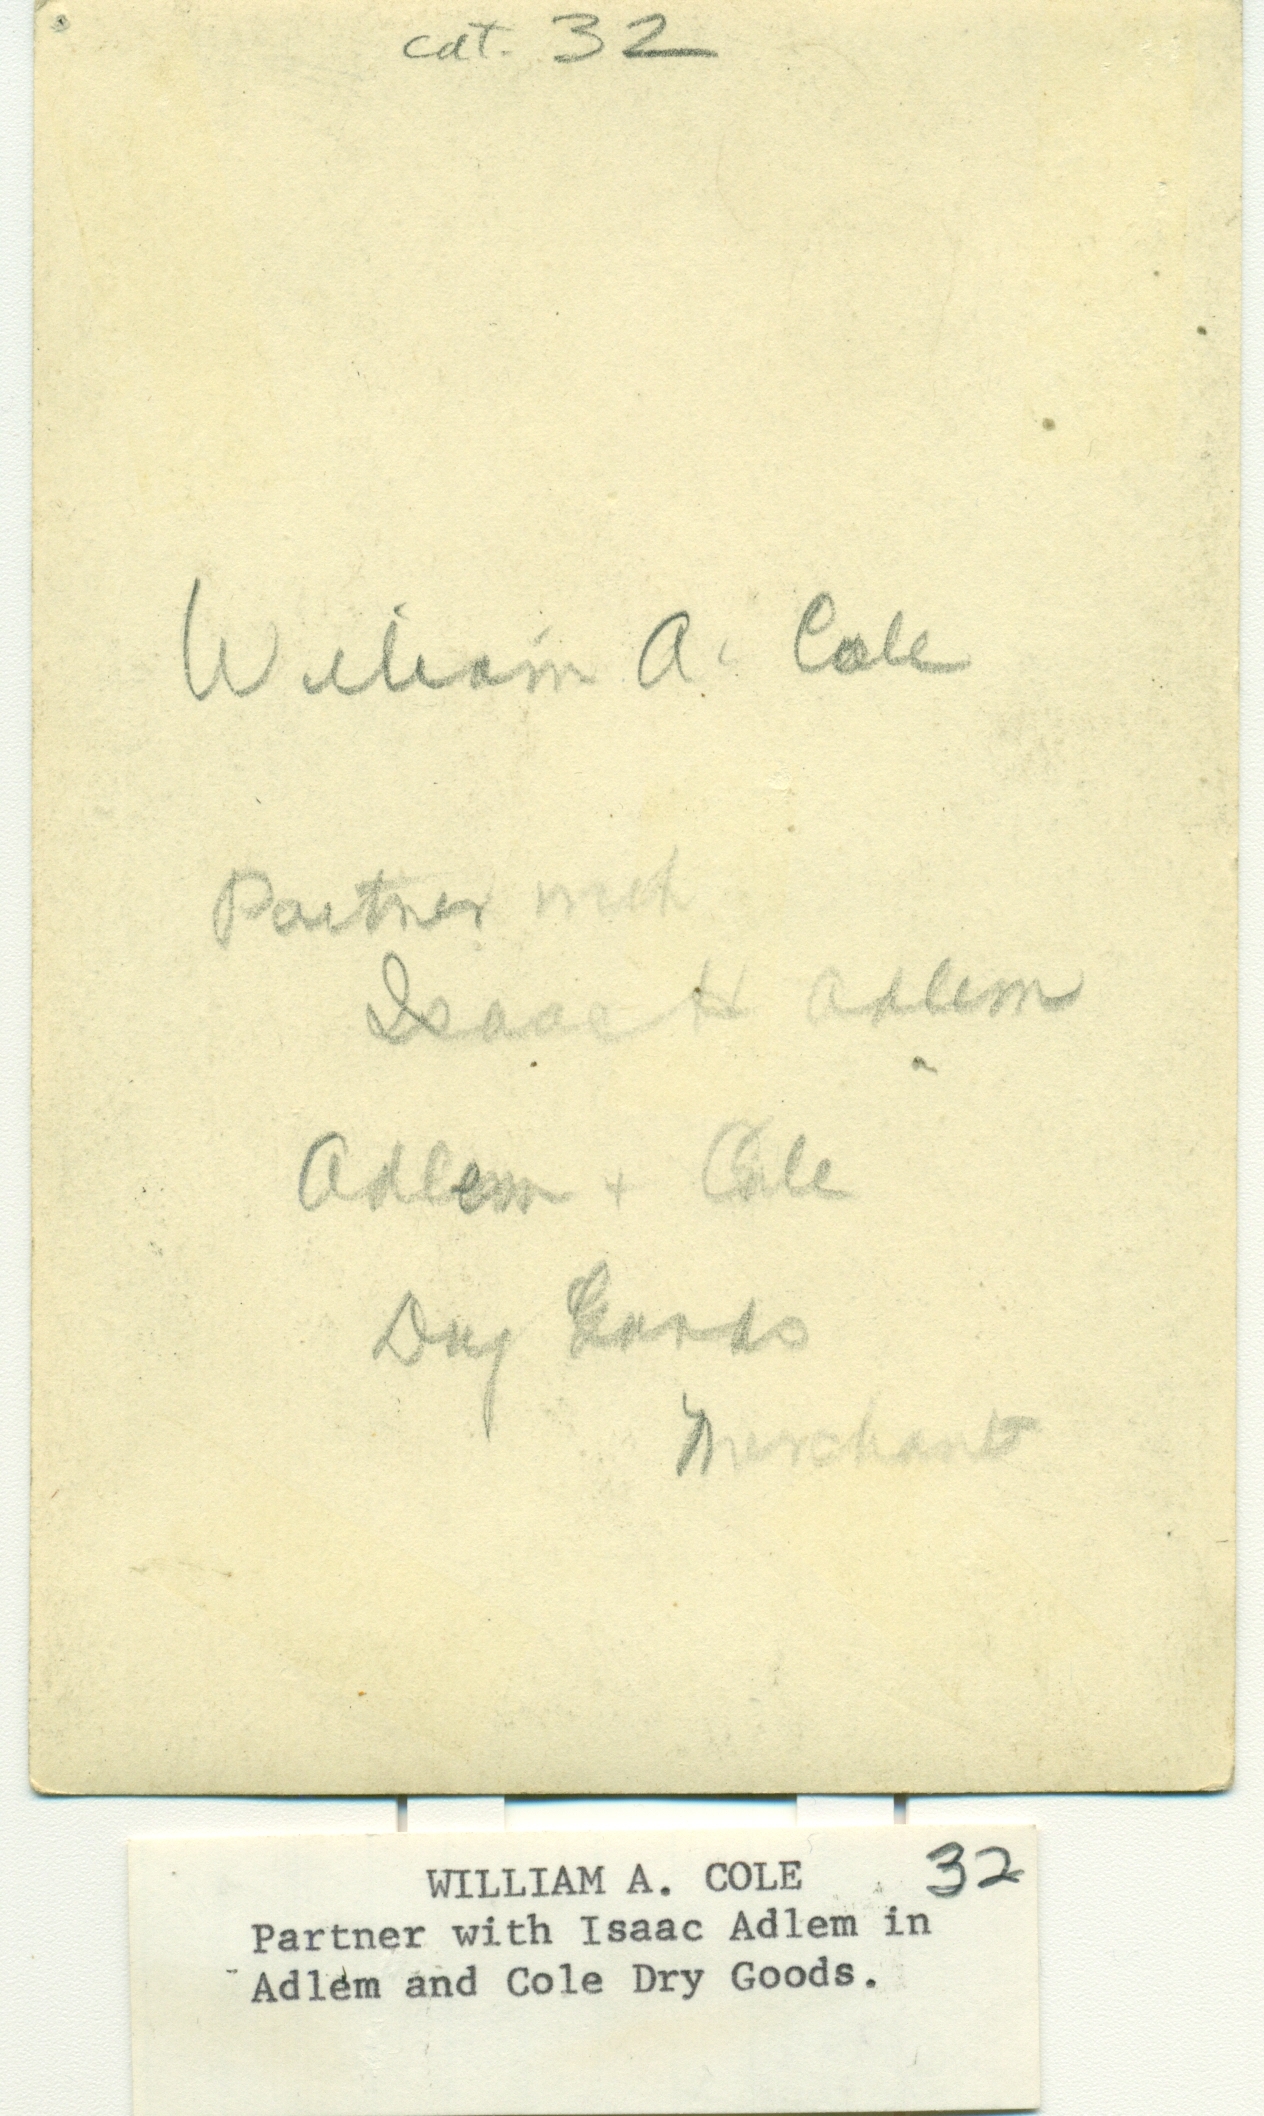 cat. 32
William A. Cole
Partner with
Isaac H Adlem
Adlem + Cole
Dry Goods
Merchant
WILLIAM A. COLE 32
Partner with Isaac Adlem in
Adlem and Cole Dry Goods.